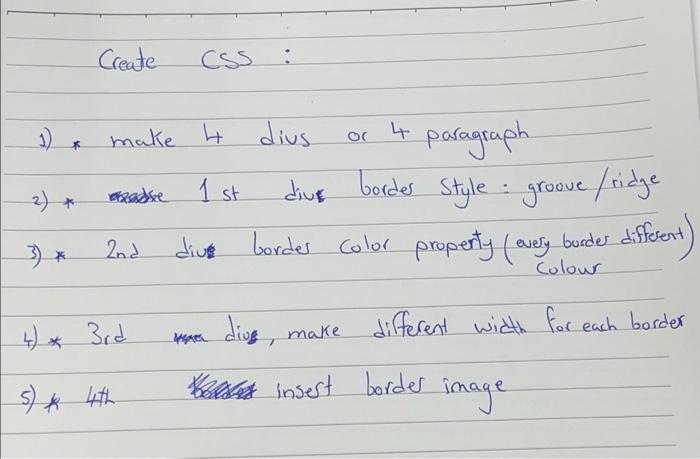 Create CSS :
1) * make 4 divs or 4 paragraph
2) * 1 st div border style : groove / ridge
3) * 2nd div border color property (every border different)
colour
4) * 3rd div, make different width for each border
5) * 4th insert border image